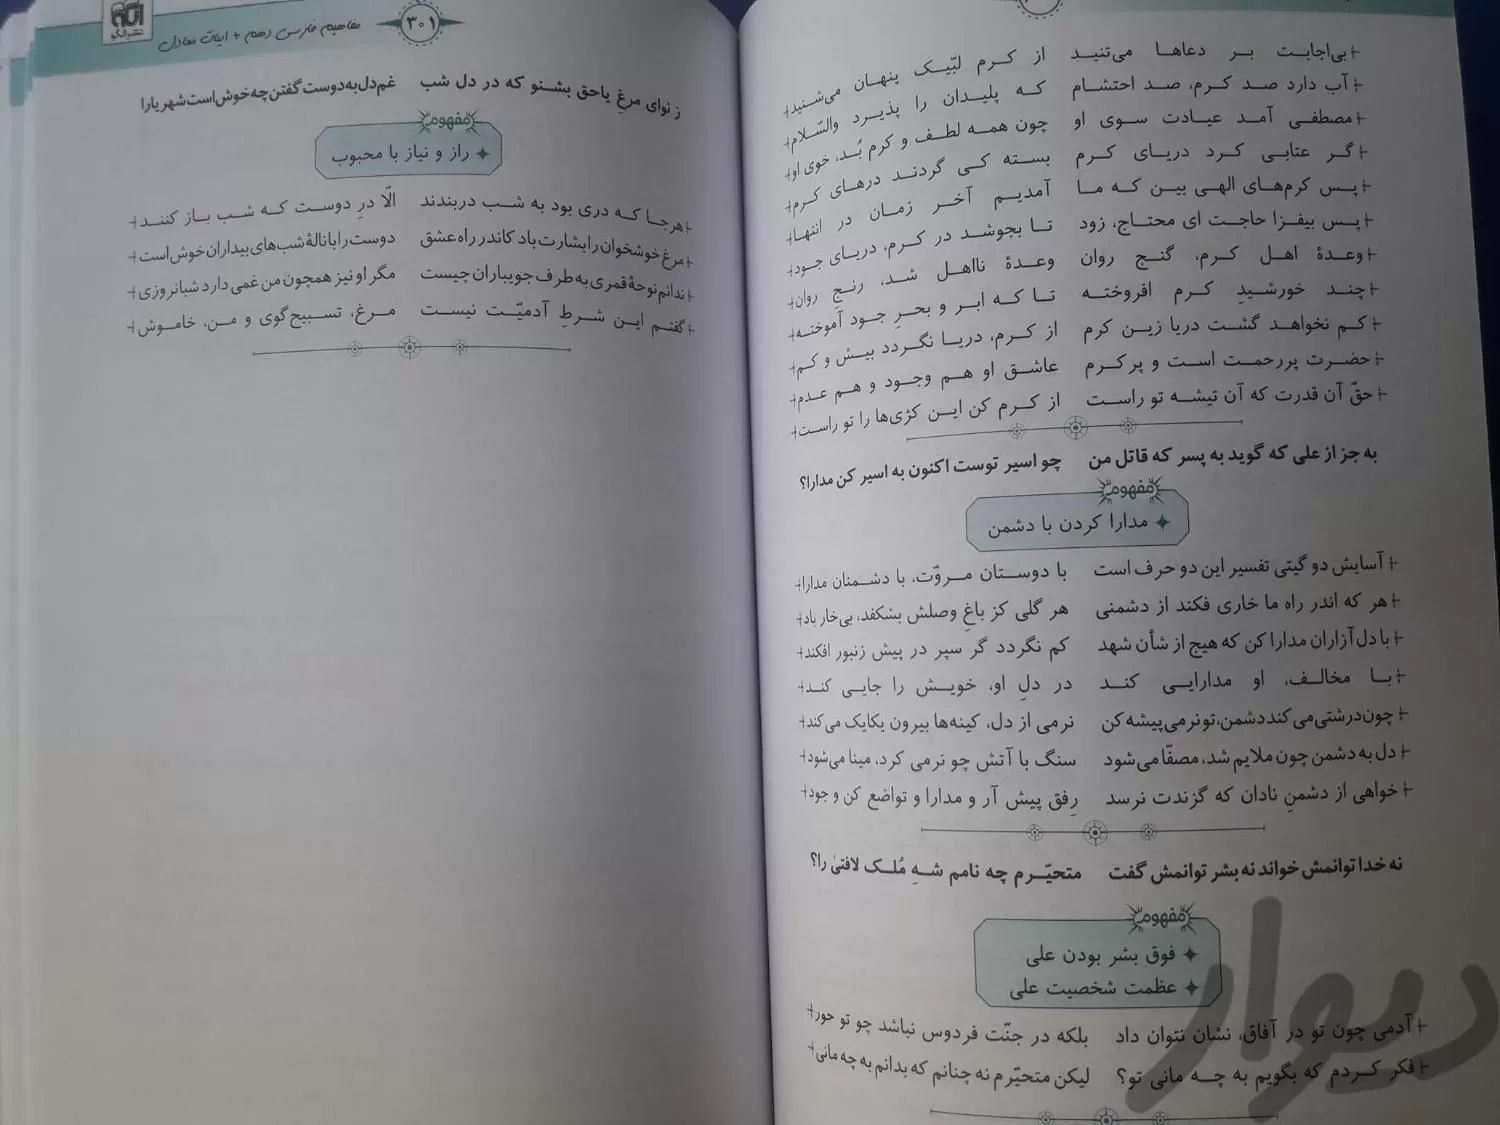 بی‌اجابت بر دعاها می‌تنید از کرم لبّیک پنهان می‌شنید
آب دارد صد کرم، صد احتشام که پلیدان را پذیرد والسّلام
مصطفی آمد عیادت سوی او چون همه لطف و کرم بُد، خوی او
گر عتابی کرد دریای کرم بسته کی گردند درهای کرم
پس کرم‌های الهی بین که ما آمدیم آخر زمان در انتها
پس بیفزا حاجت ای محتاج، زود تا بجوشد در کرم، دریای جود
وعدهٔ اهل کرم، گنج روان وعدهٔ نااهل شد، رنج روان
چند خورشیدِ کرم افروخته تا که ابر و بحرِ جود آموخته
کم نخواهد گشت دریا زین کرم از کرم، دریا نگردد بیش و کم
حضرت پررحمت است و پرکرم عاشق او هم وجود و هم عدم
حقّ آن قدرت که آن تیشه تو راست از کرم کن این کژی‌ها را تو راست
به جز از علی که گوید به پسر که قاتل من چو اسیر توست اکنون به اسیر کن مدارا؟
مفهوم
مدارا کردن با دشمن
آسایش دو گیتی تفسیر این دو حرف است با دوستان مروّت، با دشمنان مدارا
هر که اندر راه ما خاری فکند از دشمنی هر گلی کز باغِ وصلش بشکفد، بی‌خار باد
با دل‌آزاران مدارا کن که هیچ از شأن شهد کم نگردد گر سپر در پیش زنبور افکند
با مخالف، او مدارایی کند در دلِ او، خویش را جایی کند
چون درشتی می‌کند دشمن، تو نرمی پیشه کن نرمی از دل، کینه‌ها بیرون یکایک می‌کند
دل به دشمن چون ملایم شد، مصفّا می‌شود سنگ با آتش چو نرمی کرد، مینا می‌شود
خواهی از دشمنِ نادان که گزندت نرسد رِفق پیش آر و مدارا و تواضع کن و جود
نه خدا توانمش خواند نه بشر توانمش گفت متحیّرم چه نامم شهِ مُلک لافتیٰ را؟
مفهوم
فوق بشر بودن علی
عظمت شخصیت علی
آدمی چون تو در آفاق، نشان نتوان داد بلکه در جنّت فردوس نباشد چو تو حور
فکر کردم که بگویم به چه مانی تو؟ لیکن متحیّرم نه چنانم که بدانم به چه مانی
نشر الگو
۳۰۱
مفاهیم فارسی دهم + ابیات معادل
ز نوای مرغِ یاحق بشنو که در دل شب غم دل به دوست گفتن چه خوش است شهریارا
مفهوم
راز و نیاز با محبوب
هرجا که دری بود به شب دربندند الّا درِ دوست که شب باز کنند
مرغ خوشخوان را بشارت باد کاندر راه عشق دوست را با نالهٔ شب‌های بیداران خوش است
ندانم نوحهٔ قمری به طرف جویباران چیست مگر او نیز همچون من غمی دارد شبانروزی
گفتم این شرطِ آدمیّت نیست مرغ، تسبیح‌گوی و من، خاموش
دیوار